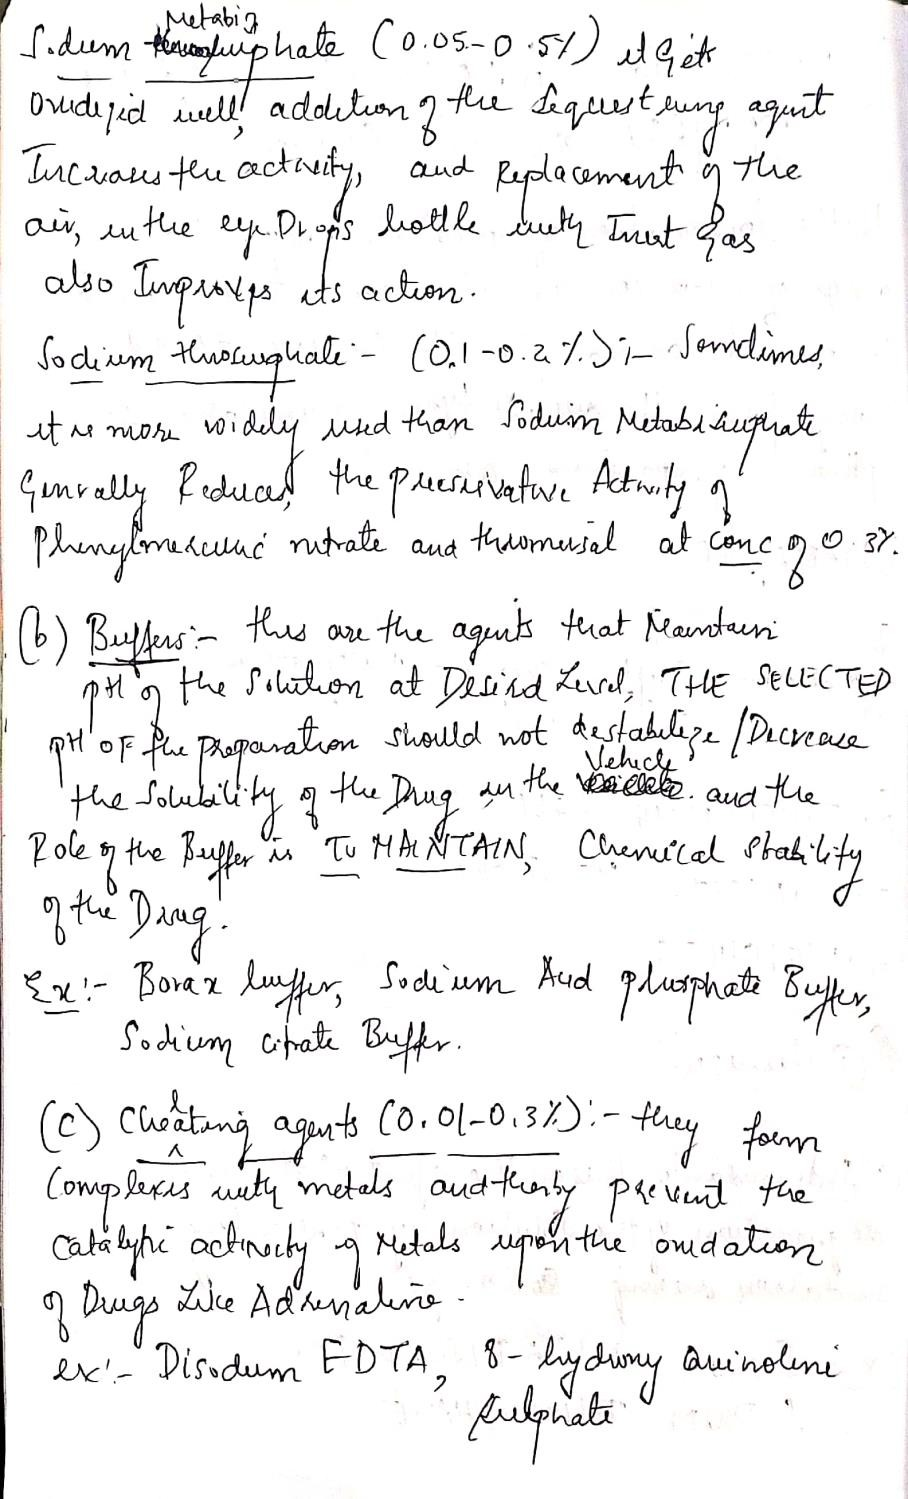 Sodium Metabisulphate (0.05-0.5%) it gets
Oxidized well, addition of the Sequestering agent
Increases the activity, and Replacement of the
air, in the eye Drops bottle with Inert Gas
also Improves its action.
Sodium thiosulphate:- (0.1-0.2%):- Somdimes,
it is more widely used than Sodium Metabisulphate
Genrally Reduces, the preservative Activity of
Phenylmercuric nitrate and thiomersal at conc of 0.3%.
(b) Buffers:- this are the agents that Maintain
pH of the Solution at Desired Level, THE SELECTED
pH OF the preparation should not destabilize/Decrease
the Solubility of the Drug in the Vehicle. and the
Role of the Buffer is To MAINTAIN, Chemical stability
of the Drug.
Ex:- Borax buffer, Sodium Acid phosphate Buffer,
Sodium citrate Buffer.
(C) Chelating agents (0.01-0.3%):- they form
Complexes with metals and therby prevent the
catalytic activity of Metals upon the oxidation
of Drugs Like Adrenaline.
ex:- Disodum EDTA, 8-hydroxy Quinoline
sulphate